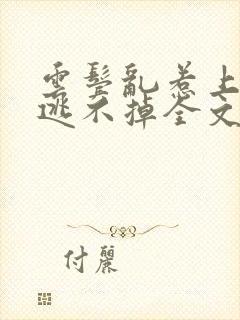 雲鬓亂惹上
逃不掉全文
付麗